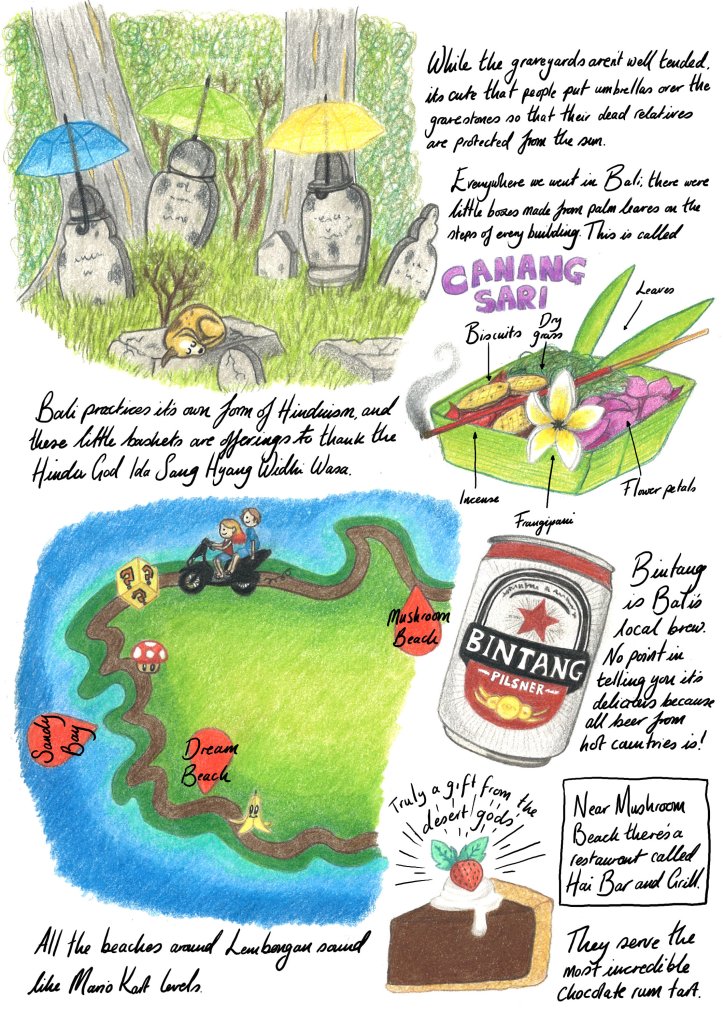 While the graveyards aren't well tended,
its cute that people put umbrellas over the
gravestones so that their dead relatives
are protected from the sun.
Everywhere we went in Bali, there were
little boxes made from palm leaves on the
steps of every building. This is called
CANANG
SARI
Leaves
Biscuits
Dry
grass
Incense
Frangipani
Flower petals
Bali practices it's own form of Hinduism, and
these little baskets are offerings to thank the
Hindu God Ida Sang Hyang Widhi Wasa.
Mushroom
Beach
Sandy
Bay
Dream
Beach
All the beaches around Lembongan sound
like Mario Kart levels.
BINTANG
PILSNER
Bintang
is Bali's
local brew.
No point in
telling you it's
delicious because
all beer from
hot countries is!
Truly a gift from the
desert gods
Near Mushroom
Beach there's a
restaurant called
Hai Bar and Grill.
They serve the
most incredible
chocolate rum tart.